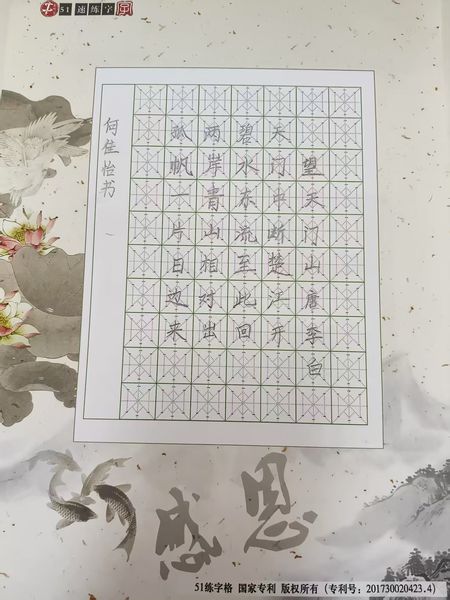 51速练字
望天门山唐李白
天门中断楚江开
碧水东流至此回
两岸青山相对出
孤帆一片日边来
何佳怡书
感恩
51练字格 国家专利 版权所有（专利号：201730020423.4）